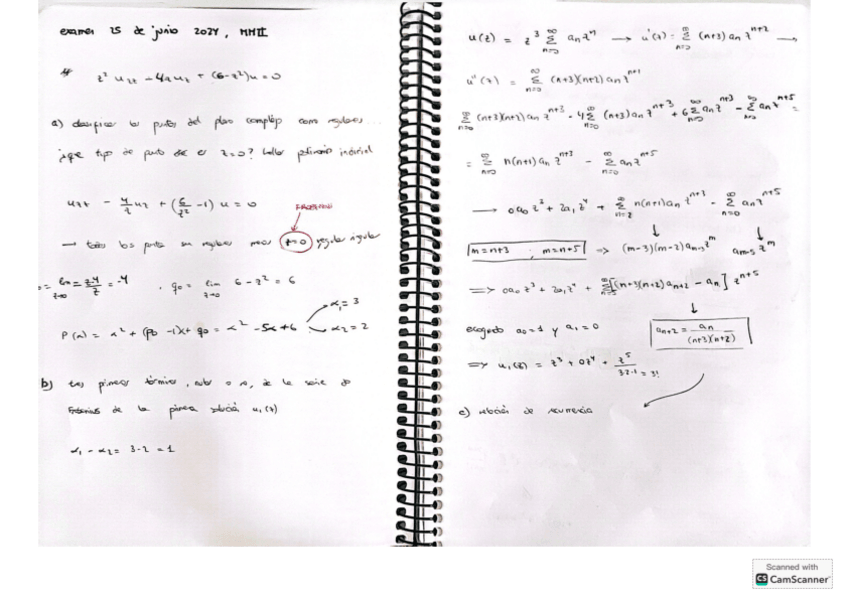 examen 25 de junio 2024, MMII
z² u_zz - 4z u_z + (6-z²)u = 0
a) clasificar los puntos del plano complejo como regulares...
¿que tipo de punto es el z=0? hallar polinomio indicial
u_zz - 4/z u_z + (6/z² - 1) u = 0
FROBENIUS
→ todos los puntos son regulares menos z=0 regular singular
= lim z→0 = -4 . q₀ = lim z→0 6 - z² = 6
P(α) = α² + (p₀ -1)α + q₀ = α² - 5α + 6
α₁ = 3
α₂ = 2
b) tres primeros términos, nulos o no, de la serie de
Frobenius de la primera solución u₁(z)
α₁ - α₂ = 3-2 = 1
u(z) = z³ ∑ n=0 ∞ aₙ zⁿ → u'(z) = ∑ n=0 ∞ (n+3) aₙ z^{n+2} →
u''(z) = ∑ n=0 ∞ (n+3)(n+2) aₙ z^{n+1}
∑ n=0 ∞ (n+3)(n+2) aₙ z^{n+3} - 4∑ n=0 ∞ (n+3) aₙ z^{n+3} + 6∑ n=0 ∞ aₙ z^{n+3} - ∑ n=0 ∞ aₙ z^{n+5} =
= ∑ n=0 ∞ n(n+1) aₙ z^{n+3} - ∑ n=0 ∞ aₙ z^{n+5}
→ 0a₀ z³ + 2a₁ z⁴ + ∑ n=2 ∞ n(n+1) aₙ z^{n+3} - ∑ n=0 ∞ aₙ z^{n+5}
m=n+3 ; m=n+5 => (m-3)(m-2) a_{m-3} z^m a_{m-5} z^m
=> 0a₀ z³ + 2a₁ z⁴ + ∑ [(n+3)(n+2) a_{n+2} - aₙ] z^{n+5}
escogiendo a₀=1 y a₁=0
a_{n+2} = aₙ / (n+3)(n+2)
=> u₁(z) = z³ + 0z⁴ + z⁵ / 3·2·1 = 3!
c) relación de recurrencia
Scanned with
CS CamScanner